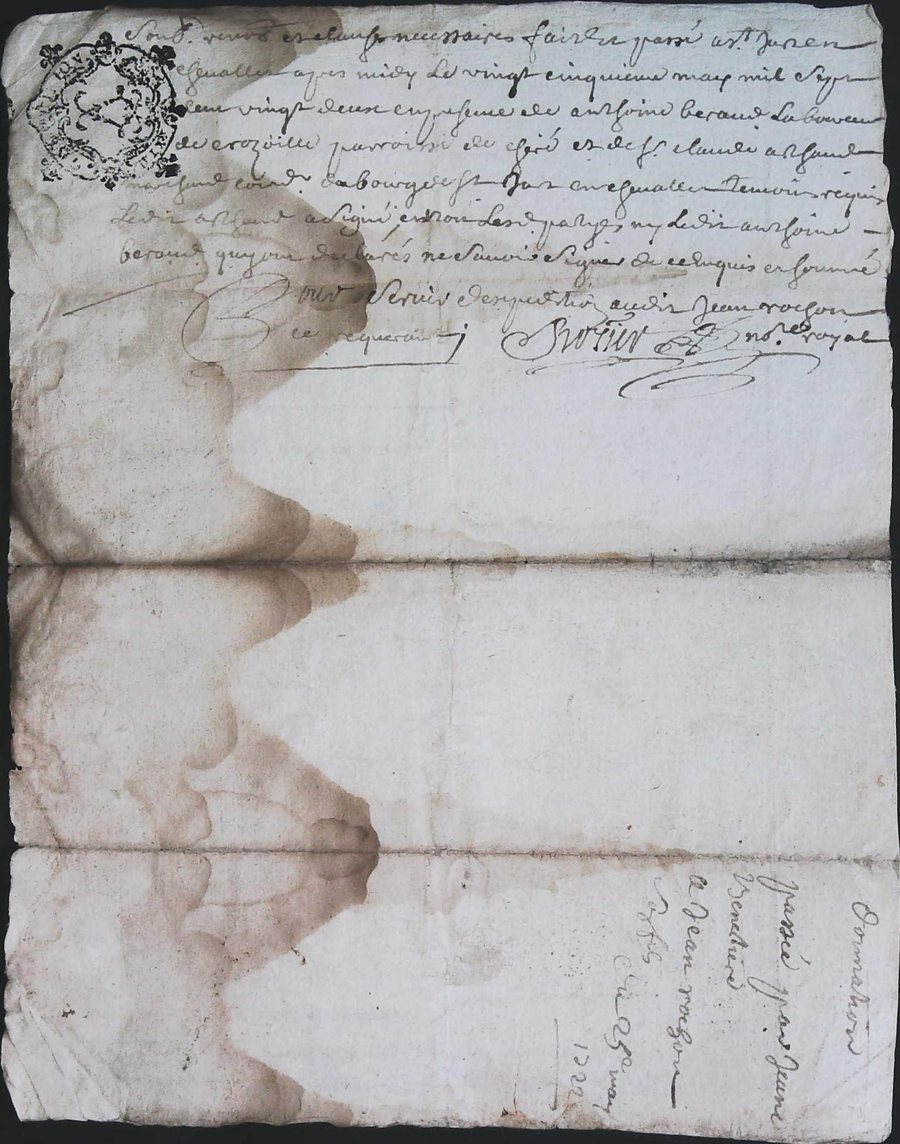 Soubs. renon. et clauses necessaires fait et passé a St. Just en
chevallet apres midy Le vingt cinquieme may mil sept
cent vingt deux en presence de anthoine beraud Laboureur
de parroisse de et de Sr. claude achaud
marchand du bourg de St Just en chevallet temoins requis
Ledit achaud a Signé et non Lesd. partyes ny Ledit anthoine
beraud quy ont declarés ne Scavoir Signer de ce enquis et sommé
Pour Servir d'expedition audit Jean rochon
ce requerant
no.re royal
donnation
passée par Jeane
a Jean rochon
Son fils
du 25e may
1722